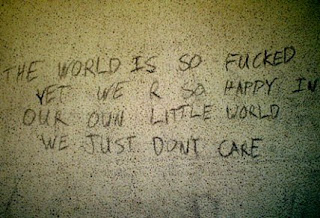 THE WORLD IS SO FUCKED
YET WE R SO HAPPY IN
OUR OUN LITTLE WORLD
WE JUST DONT CARE